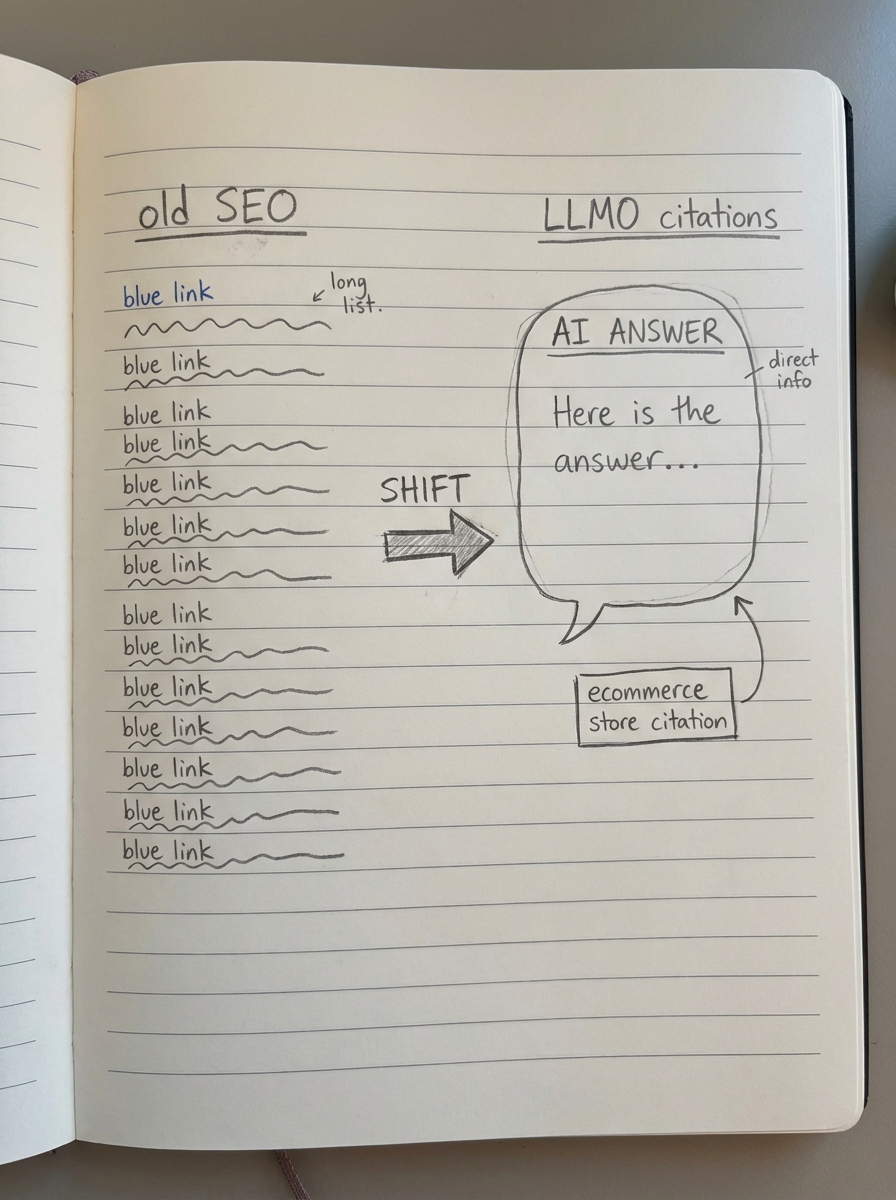 old SEO
blue link
long
list.
blue link
blue link
blue link
blue link
blue link
blue link
blue link
blue link
blue link
blue link
blue link
blue link
blue link
SHIFT
LLMO citations
AI ANSWER
Here is the
answer...
direct
info
ecommerce
store citation